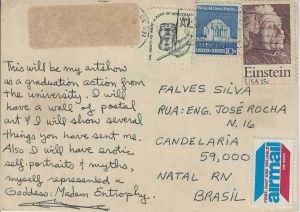 This will be my artshow
as a graduation action from
the university. I will
have a wall of postal
art & I will show several
things you have sent me.
Also I will have erotic
self-portraits & myths,
myself represented a
Goddess: Madam Entrophy.
10c
Einstein
USA 15c
FALVES SILVA
RUA: ENG. JOSÉ ROCHA
N. 16
CANDELÁRIA
59,000
NATAL RN
BRASIL
airmail